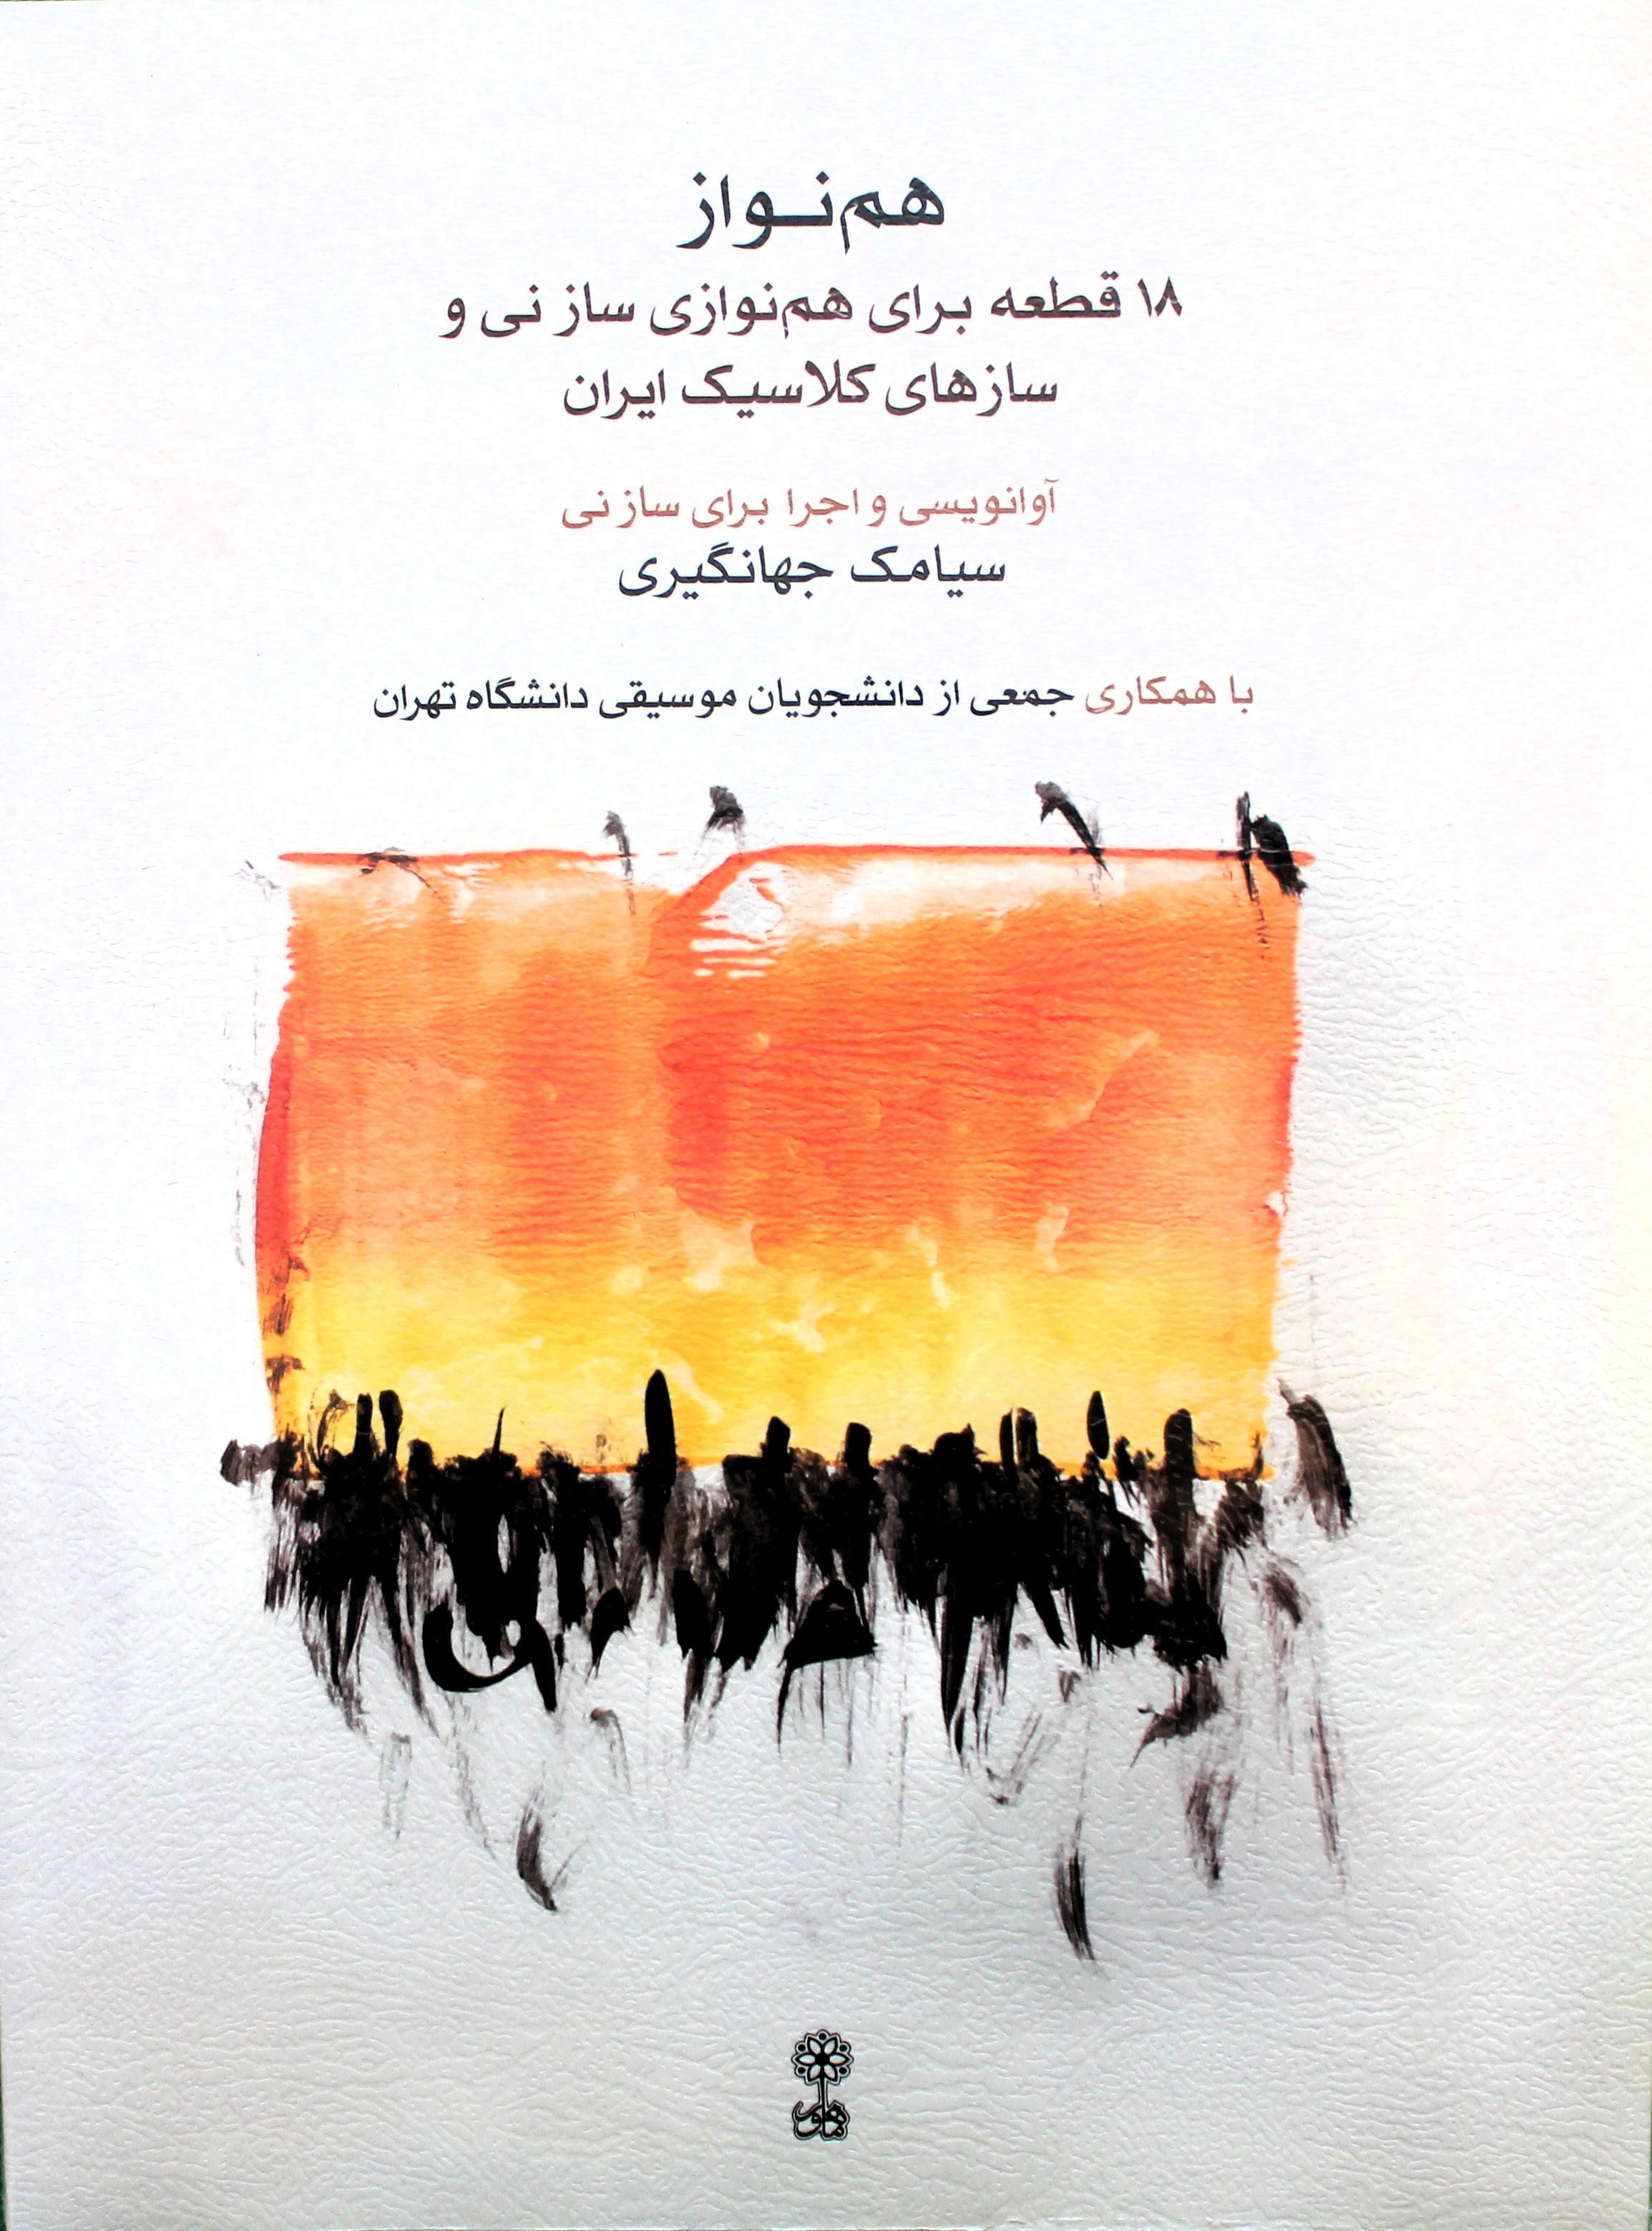 هم‌نواز
۱۸ قطعه برای هم‌نوازی ساز نی و
سازهای کلاسیک ایران
آوانویسی و اجرا برای ساز نی
سیامک جهانگیری
با همکاری جمعی از دانشجویان موسیقی دانشگاه تهران
ماهور